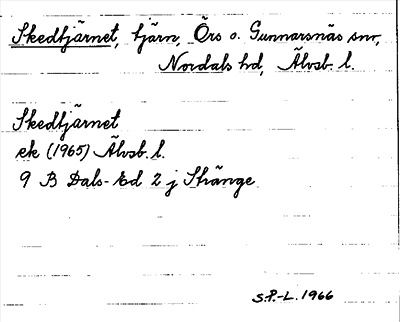 Skedtjärnet, tjärn, Örs o. Gunnarsnäs snr,
Nordals hd, Älvsb. l.
Skedtjärnet
ek (1965) Älvsb. l.
9 B Dals-Ed 2 j Stränge
S.P.-L. 1966